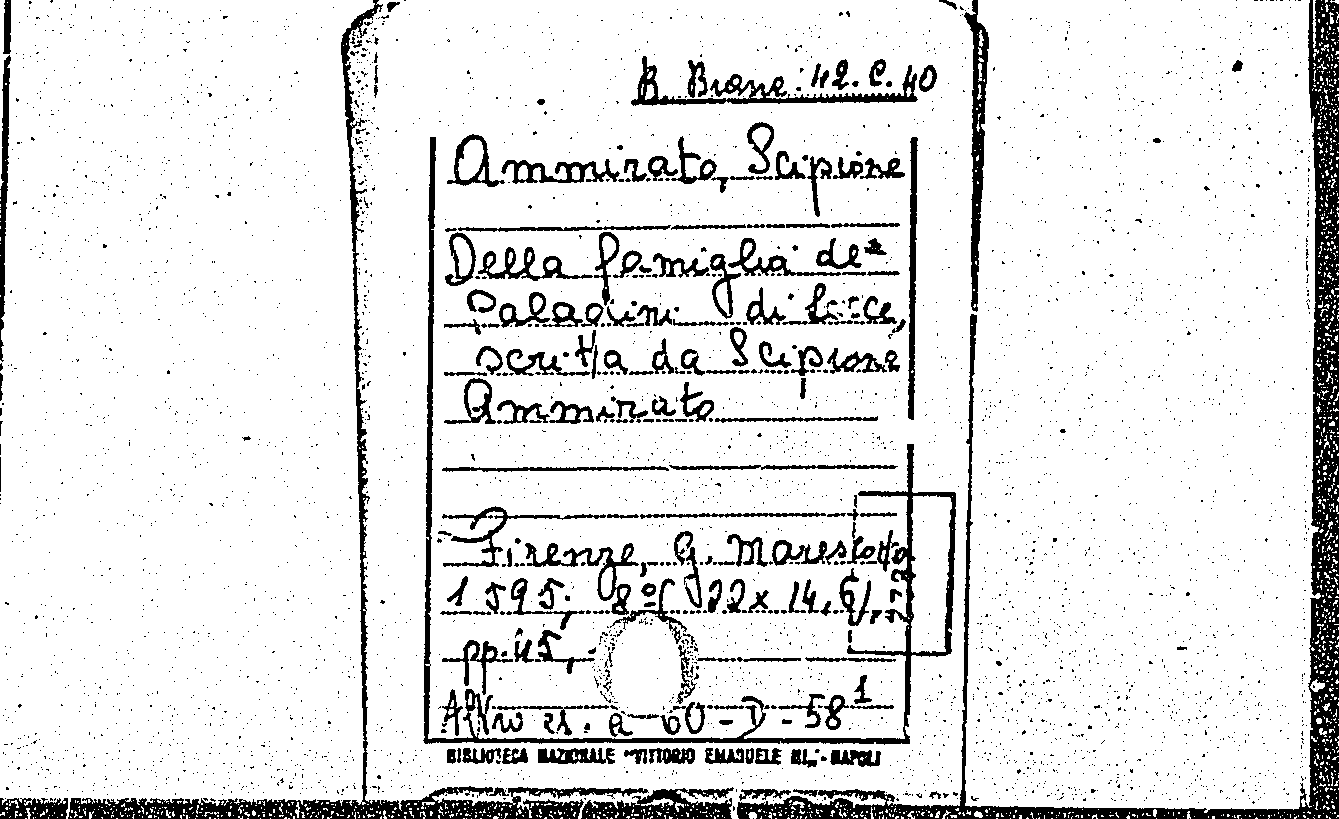 B. Branc. 42. C. 40
Ammirato, Scipione
Della famiglia de'
Paladini di Lecce,
scritta da Scipione
Ammirato
Firenze, G. Marescotti
1595; 8º( 22x 14,6),
pp. 45,
Altro es. a 60-D-58¹
BIBLIOTECA NAZIONALE "VITTORIO EMANUELE III" - NAPOLI